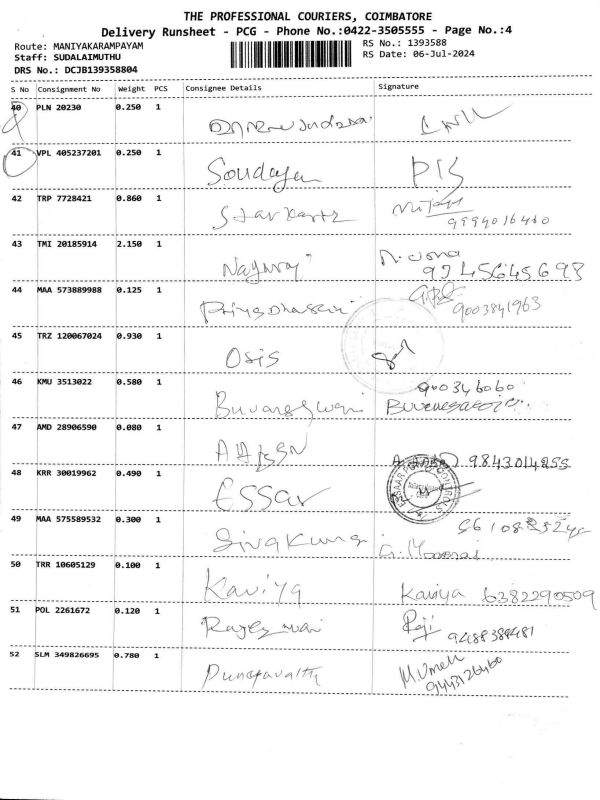 THE PROFESSIONAL COURIERS, COIMBATORE
Delivery Runsheet - PCG - Phone No.:0422-3505555 - Page No.:4
Route: MANIYAKARAMPAYAM
RS No.: 1393588
Staff: SUDALAIMUTHU
RS Date: 06-Jul-2024
DRS No.: DCJB139358804
S No Consignment No Weight PCS Consignee Details Signature
40 PLN 20230 0.250 1
41 VPL 405237201 0.250 1 Soudaya
42 TRP 7728421 0.860 1 Starkartz
9994016460
43 TMI 20185914 2.150 1 Nagaraj
44 MAA 573889988 0.125 1 Priyadharsini 9003841963
45 TRZ 120067024 0.930 1 Osis
46 KMU 3513022 0.580 1 Buvaneswari
900346060
47 AMD 28906590 0.080 1 9843014255
48 KRR 30019962 0.490 1 Essar
49 MAA 575589532 0.300 1 Sivakumar
50 TRR 10605129 0.100 1 Kaviya Kaviya 6382290509
51 POL 2261672 0.120 1 Rajeswari Raji
9488388481
52 SLM 349826695 0.780 1 M.Umesh
9443126460